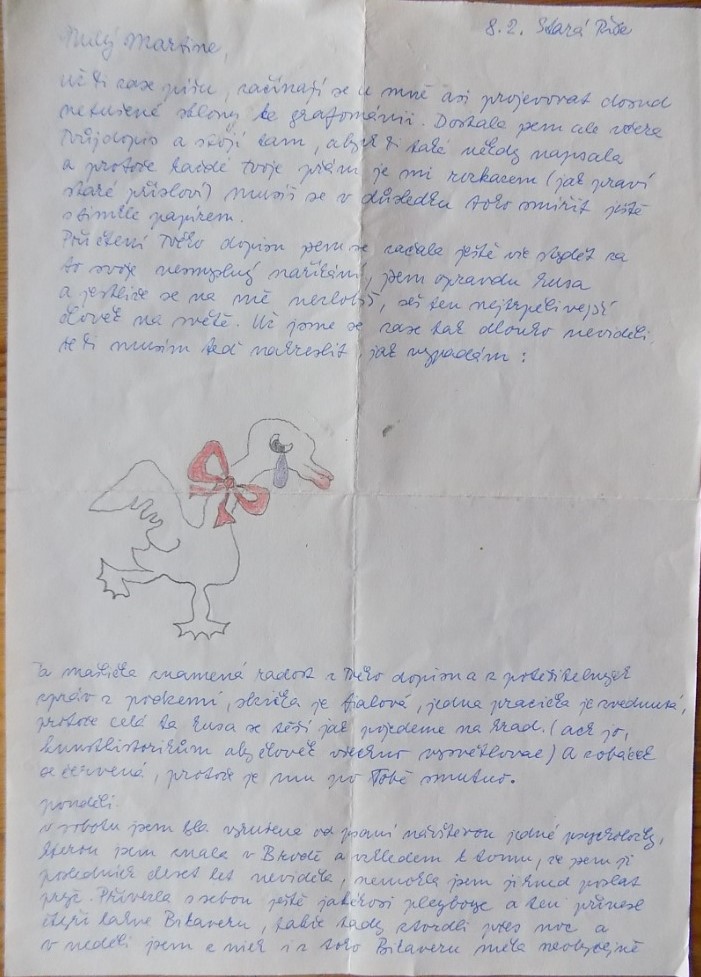 8.2. Stará Říše
Milý Martine,
už Ti zase píšu, začínají se u mně asi projevovat dosud
netušené sklony ke grafománii. Dostala jsem ale včera
Tvůj dopis a stojí tam, abych Ti také někdy napsala
a protože každé Tvoje přání je mi rozkazem (jak praví
staré přísloví) musíš se v důsledku toho smířit ještě
s tímhle papírem.
Při čtení Tvého dopisu jsem se začala ještě víc stydět za
to svoje nesmyslný naříkání, jsem opravdu husa
a jestliže se na mě nezlobíš, seš ten nejtrpělivější
člověk na světě. Už jsme se zase tak dlouho neviděli
že Ti musím teď nakreslit, jak vypadám:
Ta mašlička znamená radost z Tvého dopisu a z potěšitelných
zpráv z podzemí, slzička je fialová, jedna pracička je zvednutá,
protože celá ta husa se těší jak pojedeme na hrad. (ach jo,
kunsthistorikům aby člověk všechno vysvětloval) A zobáček
se červená, protože je mu po Tobě smutno.
pondělí.
v sobotu jsem byla vyrušena od psaní návštěvou jedné psycholožky,
kterou jsem znala v Brodě a vzhledem k tomu, že jsem ji
posledních deset let neviděla, nemohla jsem ji hned poslat
pryč. Přivezla s sebou ještě jakéhosi playboye a ten přinesl
čtyři lahve Bikaveru, takže tady tvrdli přes noc a
v neděli jsem z nich i z toho Bikaveru měla neobyčejně